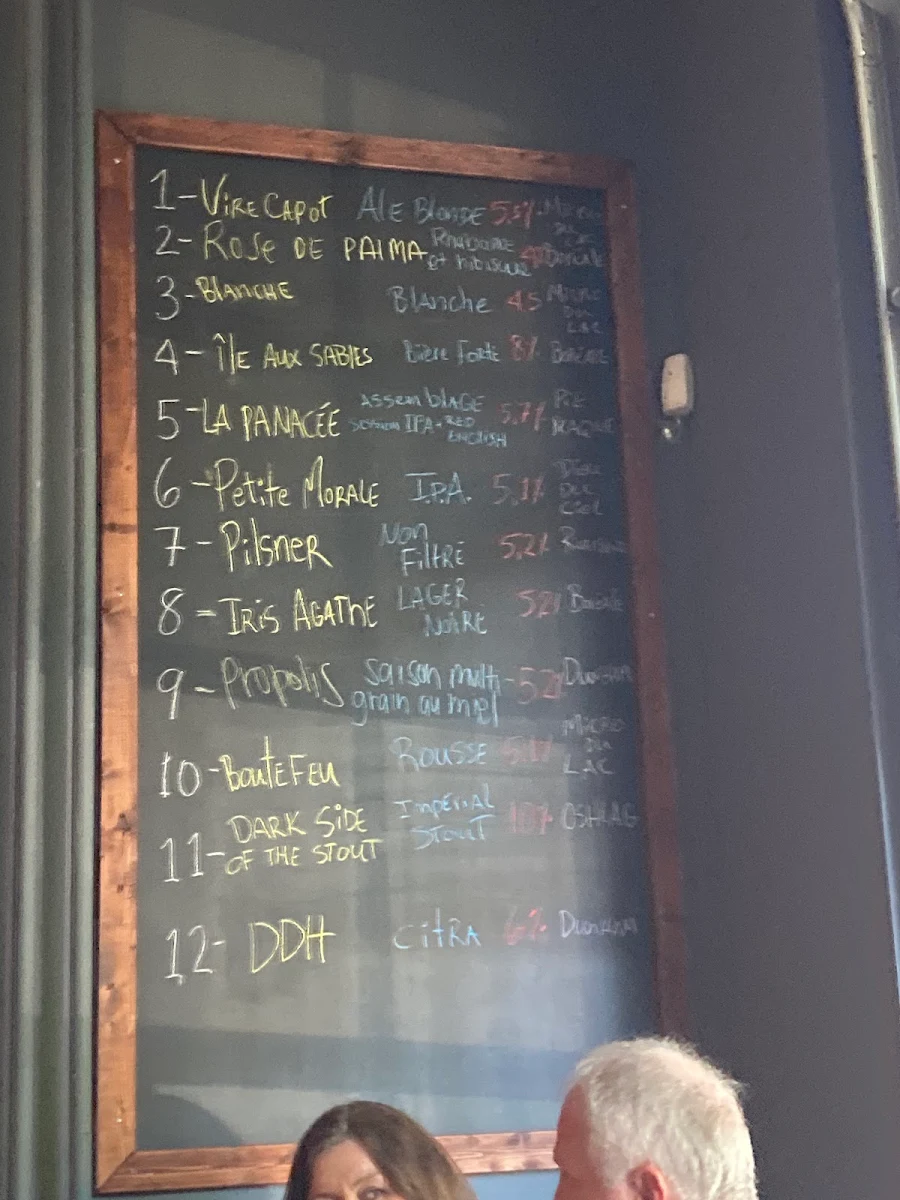 1-Vire Capot Ale Blonde 5,5% Micro
DU
LAC
2- Rose DE PAIMA Rhubarbe
et hibiscus 4% Boréale
3-Blanche Blanche 4.5 Micro
DU
LAC
4- Île Aux SABLES Bière Forte 8% Boréale
5-LA PANACÉE ASSEMBLAGE
IPA-RED
ENGLISH 5,7% PIE
BRAQUE
6-Petite Morale I.P.A. 5,1% Dieu
DU
Ciel
7-Pilsner Non
Filtré 5,2%
8-Iris AGAThE LAGER
NoiRE 52% Boréale
9-Propolis Saison multi-
grain au miel 52% Dunham
10-BouteFeu ROUSSE MICRO
DU
LAC
11-DARK SIDE
OF THE STOUT Impérial
STOUT 10% OSHLAG
12- DDH CitRA 6% Dunham